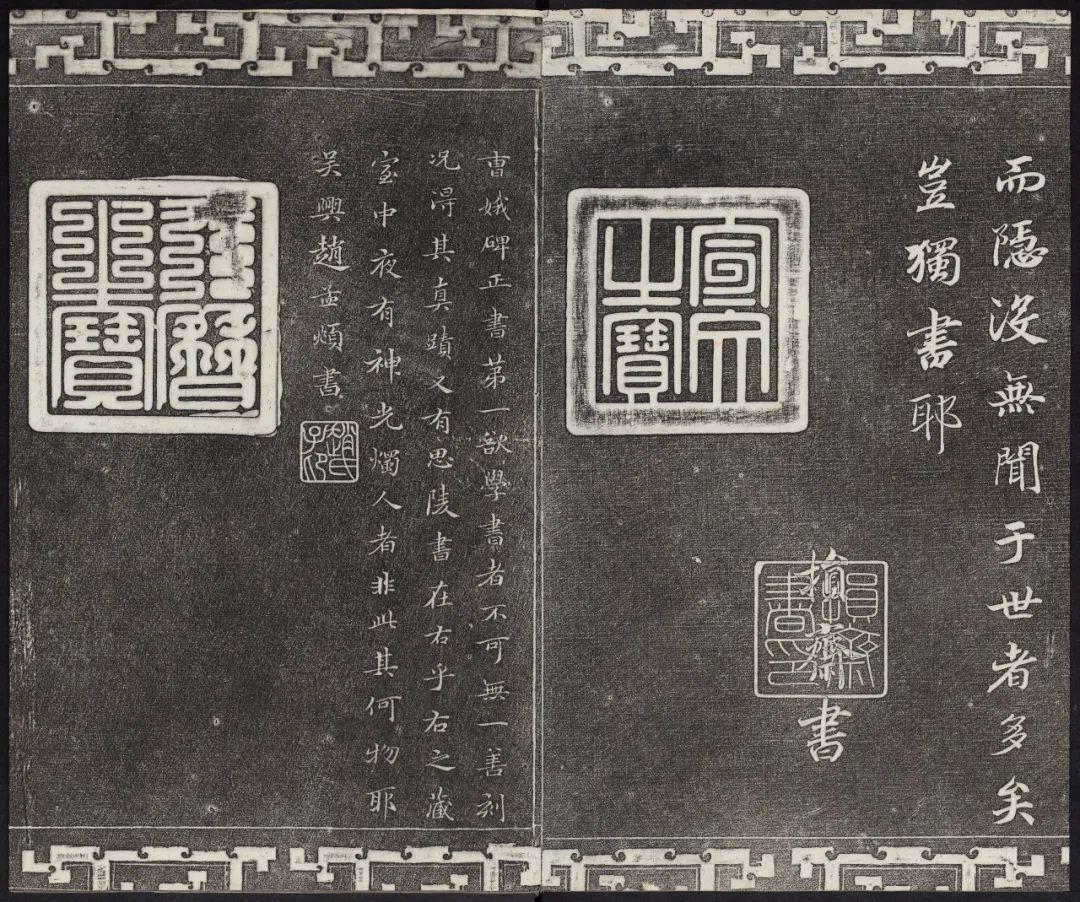 而隱没無聞于世者多矣
豈獨書耶
損齋書
損齋書印
宣文之寶
曹娥碑正書第一欲學書者不可無一善刻
況得其真蹟又有思陵書在右乎右之藏
室中夜有神光燭人者非此其何物耶
吳興趙孟頫書
趙氏子昂
天曆之寶